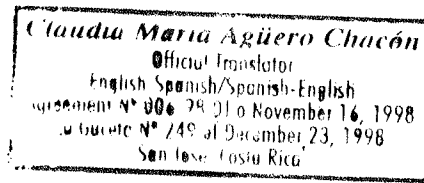 Claudia María Agüero Chacón
Official Translator
English Spanish/Spanish-English
Nº 006 98 November 16, 1998
Nº 249 of December 23, 1998
San José Costa Rica